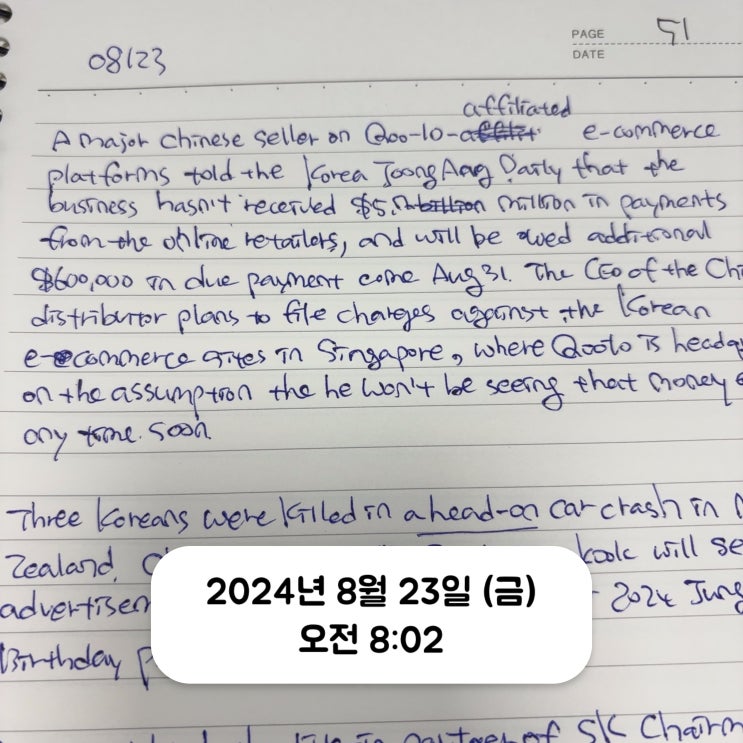 PAGE 51
DATE
08/23
affiliated
A major Chinese seller on Qoo-10- e-commerce
platforms told the Korea JoongAng Daily that the
business hasn't received $5. million in payments
from the online retailers, and will be owed additional
$600,000 in due payment come Aug 31. The CEO of the Chi
distributor plans to file charges against the Korean
e-commerce sites in Singapore, where Qoo10 is headq
on the assumption the he won't be seeing that money
any time soon.
Three Koreans were killed in a head-on car crash in
Zealand. kook will se
advertisem - 2024 Jung
Birthday p
2024년 8월 23일 (금)
오전 8:02
partner of SK Chairm